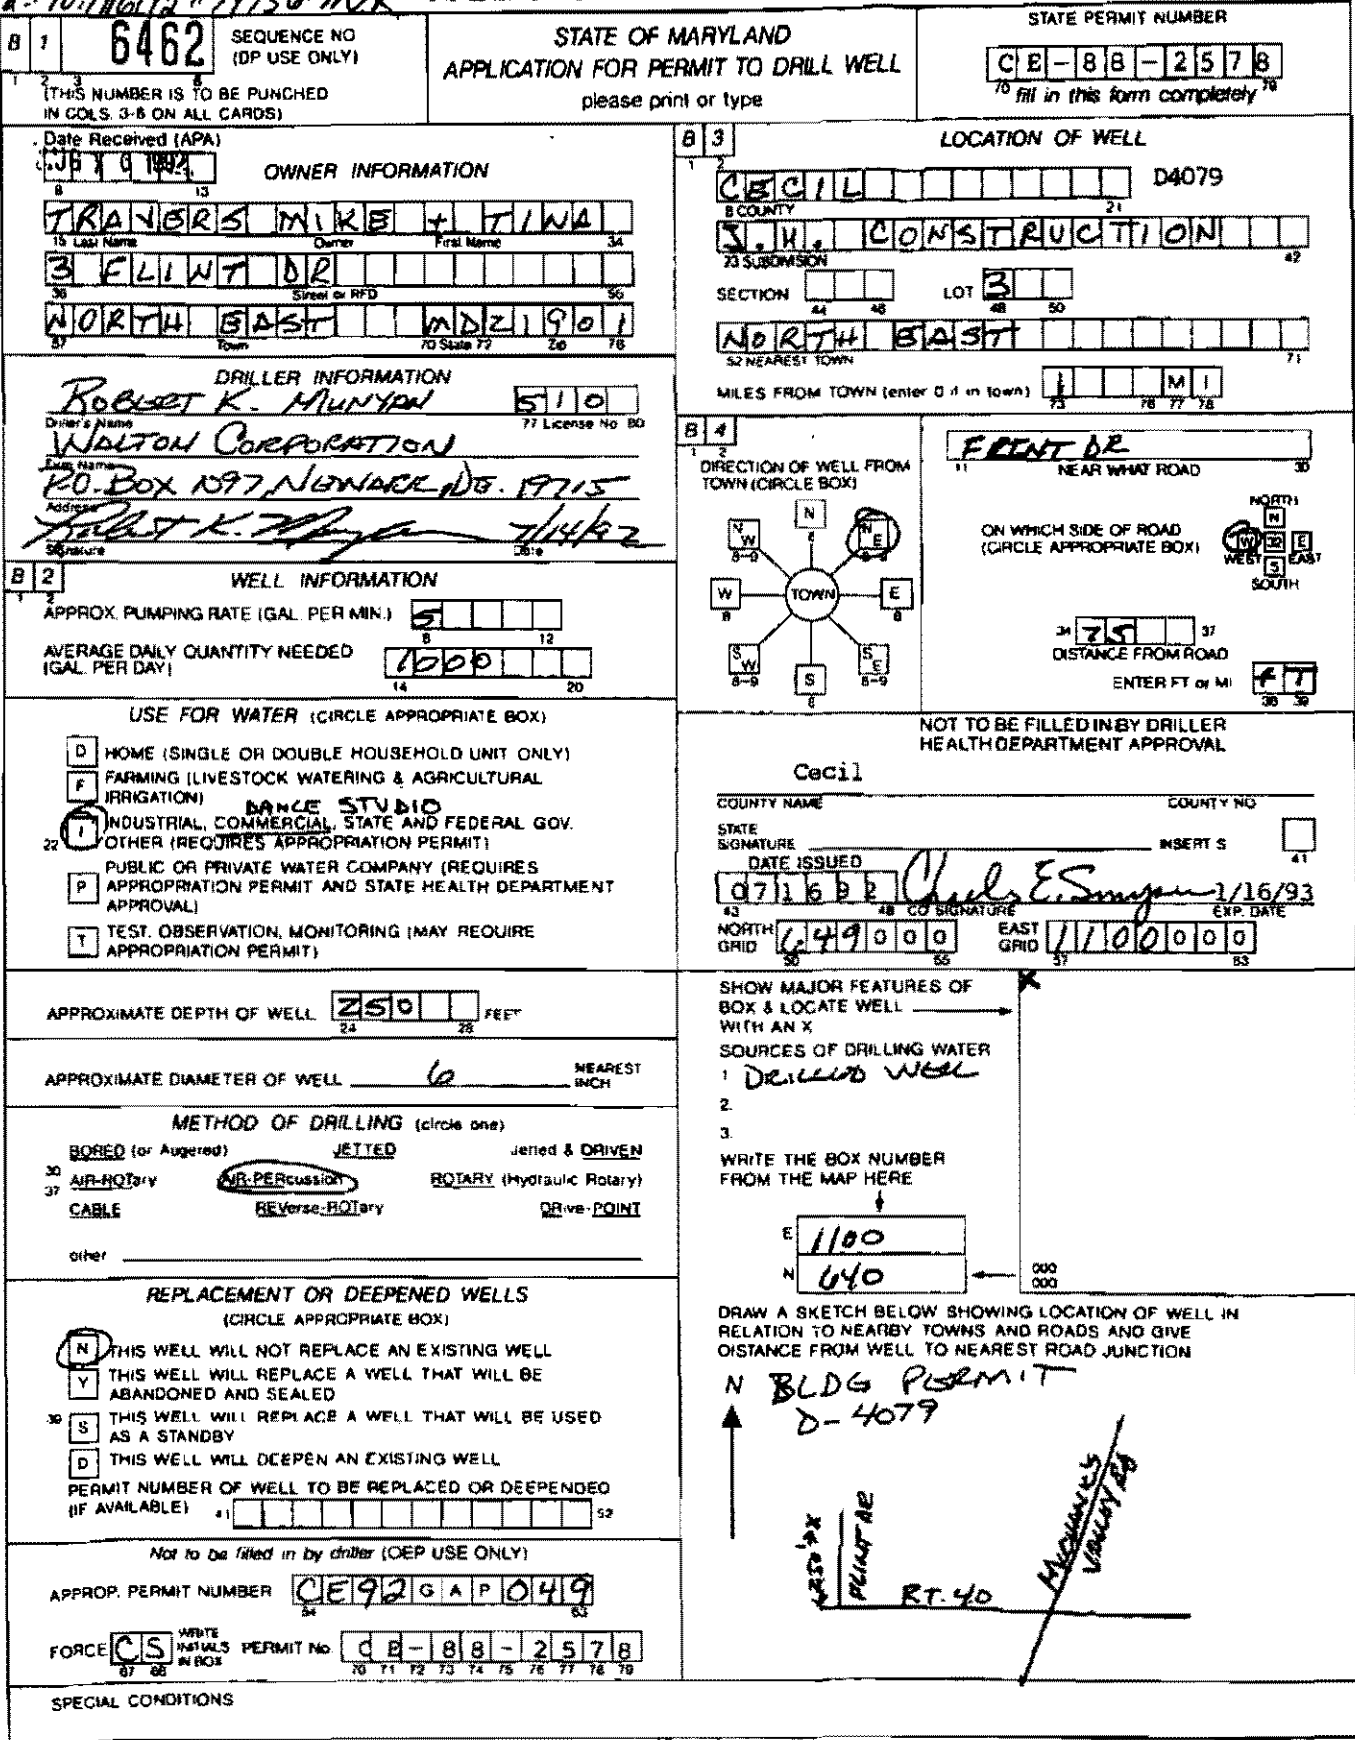 B 1 6462 SEQUENCE NO
(DP USE ONLY)
1 2 3 6
(THIS NUMBER IS TO BE PUNCHED
IN COLS. 3-6 ON ALL CARDS)
STATE OF MARYLAND
APPLICATION FOR PERMIT TO DRILL WELL
please print or type
STATE PERMIT NUMBER
CE-88-2578
70 fill in this form completely 79
Date Received (APA)
8 13
OWNER INFORMATION
TRAVERS MIKE + TINA
15 Last Name Owner First Name 34
3 FLINT DR
36 Street or RFD 55
NORTH EAST MD 21901
57 Town 70 State 72 Zip 76
DRILLER INFORMATION
ROBERT K. MUNYAN 510
Driller's Name 77 License No 80
WALTON CORPORATION
Firm Name
P.O. BOX 1097, NEWARK, DE. 19715
Address
Robert K. Munyan 7/14/92
Signature Date
B 2 WELL INFORMATION
1 2
APPROX. PUMPING RATE (GAL. PER MIN.) 5
8 12
AVERAGE DAILY QUANTITY NEEDED
(GAL. PER DAY) 1000
14 20
USE FOR WATER (CIRCLE APPROPRIATE BOX)
D HOME (SINGLE OR DOUBLE HOUSEHOLD UNIT ONLY)
F FARMING (LIVESTOCK WATERING & AGRICULTURAL
IRRIGATION)
DANCE STUDIO
I INDUSTRIAL, COMMERCIAL, STATE AND FEDERAL GOV.
22 OTHER (REQUIRES APPROPRIATION PERMIT)
PUBLIC OR PRIVATE WATER COMPANY (REQUIRES
P APPROPRIATION PERMIT AND STATE HEALTH DEPARTMENT
APPROVAL)
T TEST, OBSERVATION, MONITORING (MAY REQUIRE
APPROPRIATION PERMIT)
APPROXIMATE DEPTH OF WELL 250 FEET
24 28
APPROXIMATE DIAMETER OF WELL 6 NEAREST
INCH
METHOD OF DRILLING (circle one)
BORED (or Augered) JETTED Jetted & DRIVEN
30 AIR-ROTary AIR-PERcussion ROTARY (Hydraulic Rotary)
37
CABLE REVerse-ROTary DRive-POINT
other
REPLACEMENT OR DEEPENED WELLS
(CIRCLE APPROPRIATE BOX)
N THIS WELL WILL NOT REPLACE AN EXISTING WELL
Y THIS WELL WILL REPLACE A WELL THAT WILL BE
ABANDONED AND SEALED
39 S THIS WELL WILL REPLACE A WELL THAT WILL BE USED
AS A STANDBY
D THIS WELL WILL DEEPEN AN EXISTING WELL
PERMIT NUMBER OF WELL TO BE REPLACED OR DEEPENDED
(IF AVAILABLE) 41 52
Not to be filled in by driller (OEP USE ONLY)
APPROP. PERMIT NUMBER CE92GAP049
54 63
FORCE CS WRITE INITIALS IN BOX PERMIT No. CE-88-2578
67 68 70 71 72 73 74 75 76 77 78 79
SPECIAL CONDITIONS
B 3 LOCATION OF WELL
1 2
CECIL D4079
8 COUNTY 21
J.H. CONSTRUCTION
23 SUBDIVISION 42
SECTION LOT 3
44 46 48 50
NORTH EAST
52 NEAREST TOWN 71
MILES FROM TOWN (enter 0 if in town) 1 MI
73 76 77 78
B 4
1 2
DIRECTION OF WELL FROM
TOWN (CIRCLE BOX)
N
8
NW NE
8-9 8-9
W TOWN E
8 8
SW SE
8-9 8-9
S
8
FLINT DR
11 NEAR WHAT ROAD 30
ON WHICH SIDE OF ROAD
(CIRCLE APPROPRIATE BOX)
NORTH
N
W 32 E
WEST EAST
S
SOUTH
34 75 37
DISTANCE FROM ROAD
ENTER FT or MI FT
38 39
NOT TO BE FILLED IN BY DRILLER
HEALTH DEPARTMENT APPROVAL
Cecil
COUNTY NAME COUNTY NO
STATE
SIGNATURE INSERT S
41
DATE ISSUED
071692 1/16/93
43 48 CO SIGNATURE EXP. DATE
NORTH
GRID 649000 EAST
GRID 1100000
50 55 57 63
SHOW MAJOR FEATURES OF
BOX & LOCATE WELL
WITH AN X
X
SOURCES OF DRILLING WATER
1 DRILLED WELL
2.
3.
WRITE THE BOX NUMBER
FROM THE MAP HERE
E 1100
N 640
000
000
DRAW A SKETCH BELOW SHOWING LOCATION OF WELL IN
RELATION TO NEARBY TOWNS AND ROADS AND GIVE
DISTANCE FROM WELL TO NEAREST ROAD JUNCTION
N BLDG PERMIT
D-4079
FLINT DR
RT. 40
MECHANICS
VALLEY RD